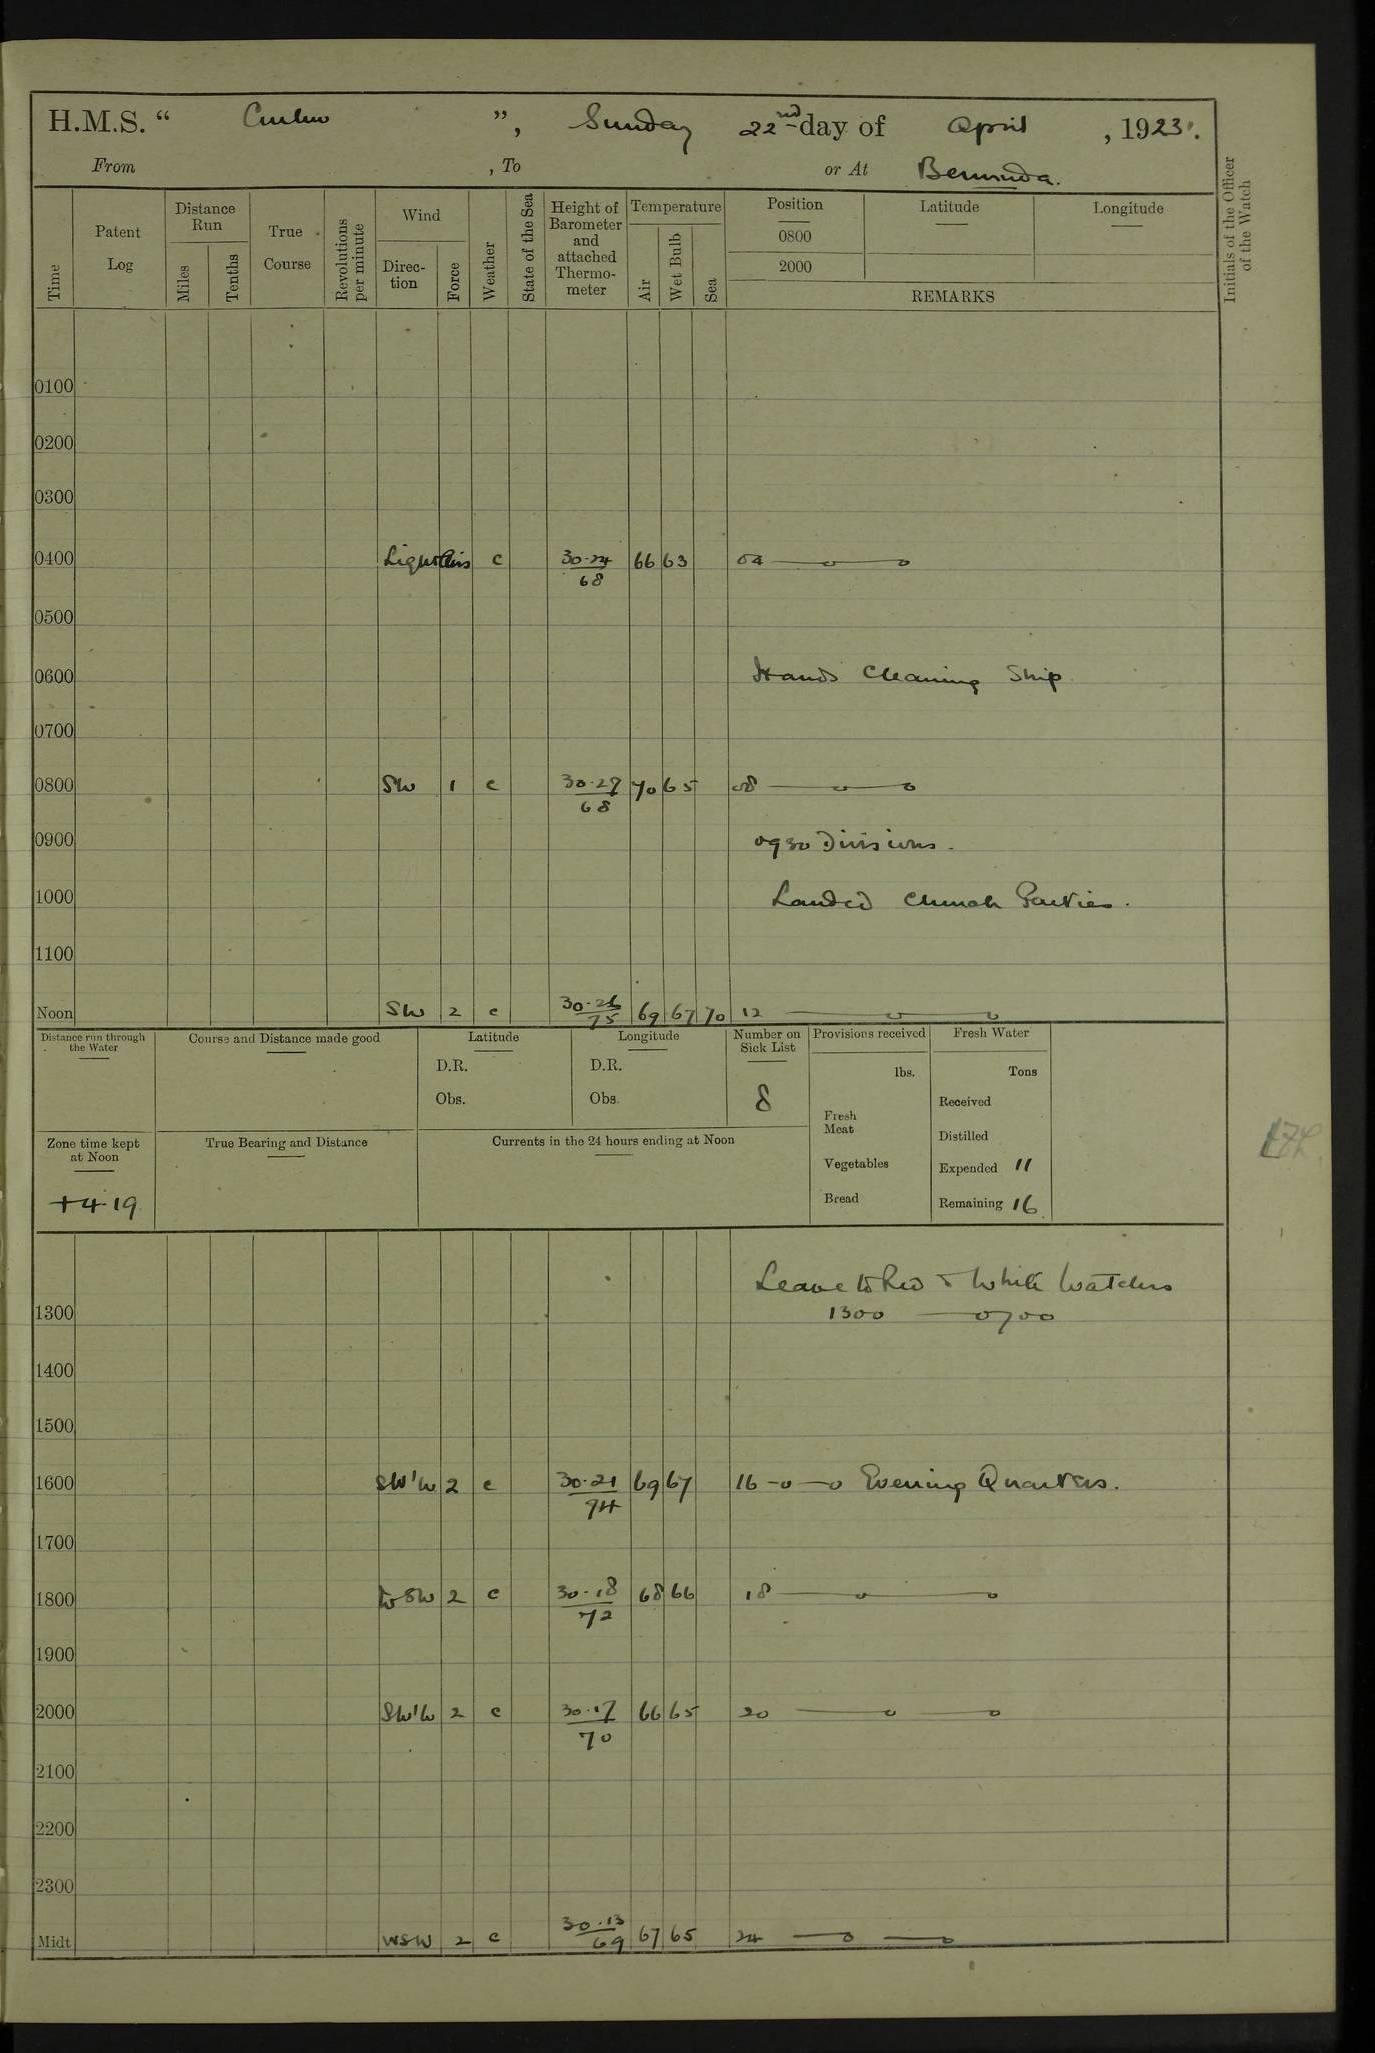 H.M.S. “ Curlew ”, Sunday 22nd day of April, 1923.
From , To or At Bermuda.
Time
Patent Log
Distance Run
Miles
Tenths
True Course
Revolutions per minute
Wind
Direction
Force
Weather
State of the Sea
Height of Barometer and attached Thermometer
Temperature
Air
Wet Bulb
Sea
Position
0800
2000
Latitude
Longitude
REMARKS
Initials of the Officer of the Watch
0100
0200
0300
0400 Light Airs c 30.24/68 66 63 04 —o—o
0500
0600 Hands Cleaning Ship
0700
0800 SW 1 c 30.27/68 70 65 08 —o—o
0900 0930 Divisions.
1000 Landed Church Parties.
1100
Noon SW 2 c 30.26/75 69 67 70 12 —o—o
Distance run through the Water
Course and Distance made good
Latitude
D.R.
Obs.
Longitude
D.R.
Obs.
Number on Sick List
8
Provisions received
lbs.
Fresh Meat
Vegetables
Bread
Fresh Water
Tons
Received
Distilled
Expended 11
Remaining 16
Zone time kept at Noon
+4.19
True Bearing and Distance
Currents in the 24 hours ending at Noon
Leave to Red & White Watches
1300 1300 — 0700
1400
1500
1600 SW'W 2 c 30.21/74 69 67 16 —o—o Evening Quarters.
1700
1800 WSW 2 c 30.18/72 68 66 18 —o—o
1900
2000 SW'W 2 c 30.17/70 66 65 20 —o—o
2100
2200
2300
Midt WSW 2 c 30.13/69 67 65 24 —o—o